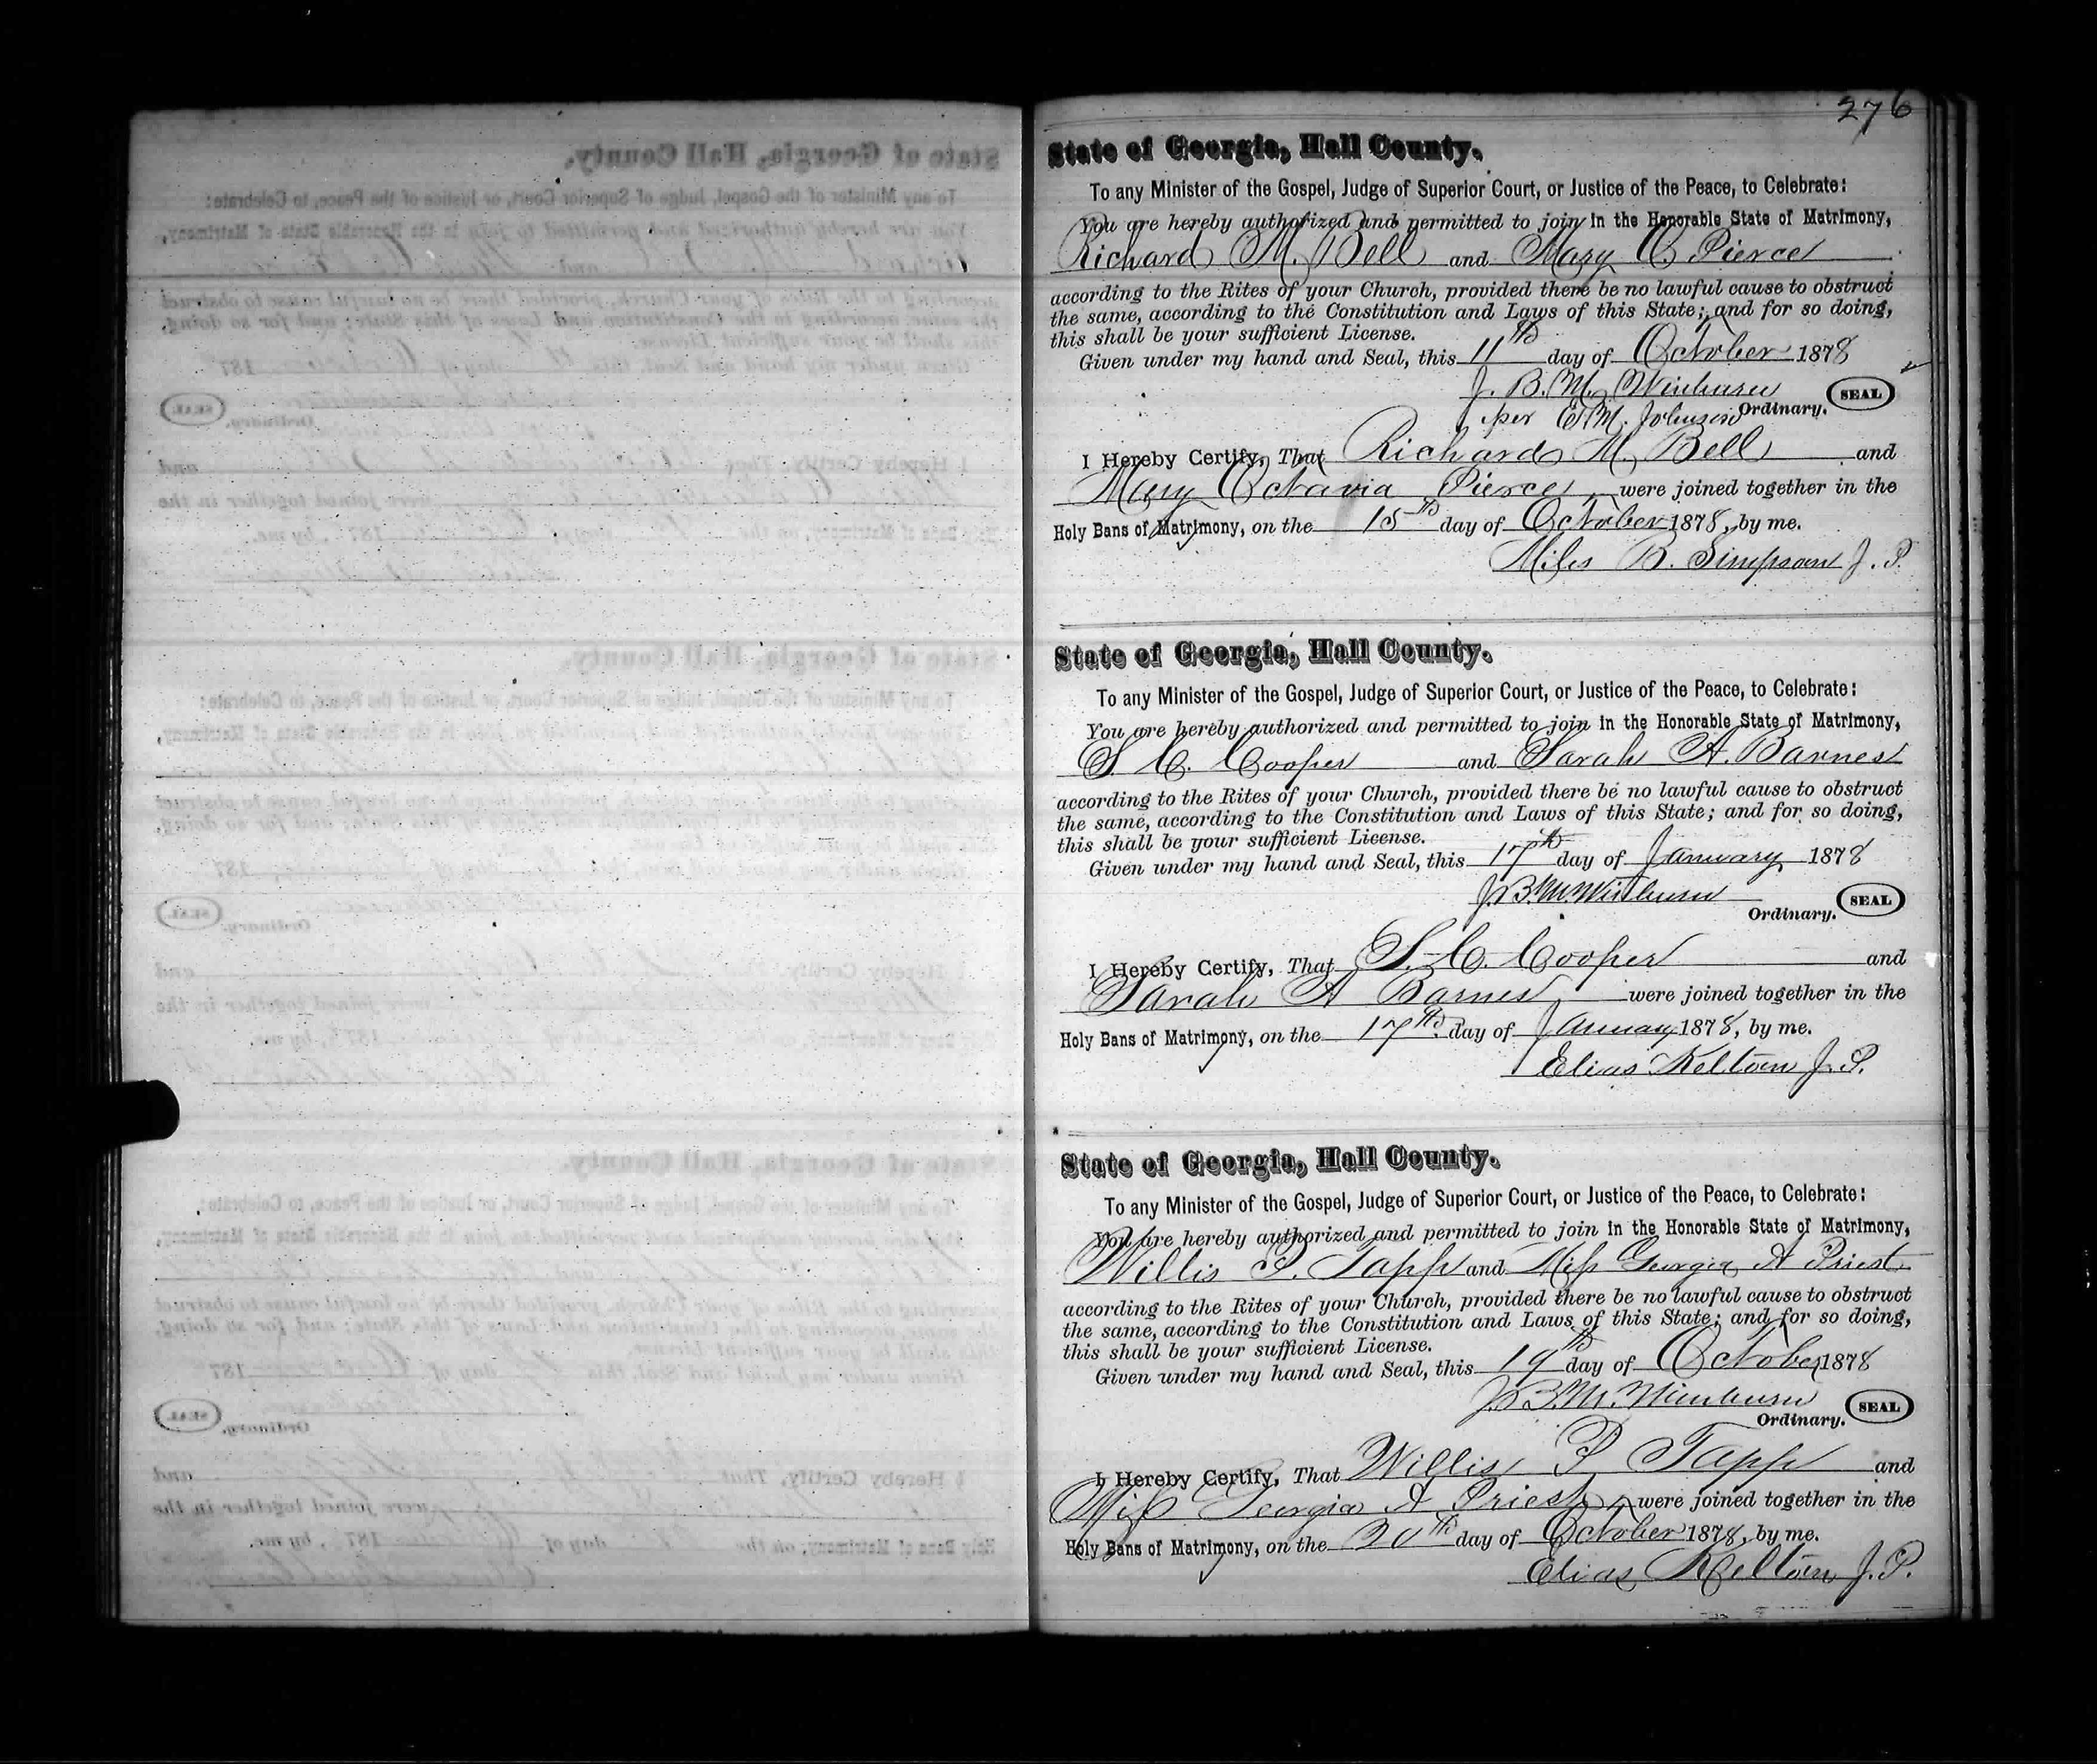 276
State of Georgia, Hall County.
To any Minister of the Gospel, Judge of Superior Court, or Justice of the Peace, to Celebrate:
You are hereby authorized and permitted to join in the Honorable State of Matrimony,
Richard M. Bell and Mary O. Pierce
according to the Rites of your Church, provided there be no lawful cause to obstruct
the same, according to the Constitution and Laws of this State; and for so doing,
this shall be your sufficient License.
Given under my hand and Seal, this 11th day of October 1878
J. B. M. Winburn
SEAL
per E. M. Johnson Ordinary.
I Hereby Certify, That Richard M. Bell and
Mary Octavia Pierce were joined together in the
Holy Bans of Matrimony, on the 15th day of October 1878, by me.
Miles B. Simpson J. P.
State of Georgia, Hall County.
To any Minister of the Gospel, Judge of Superior Court, or Justice of the Peace, to Celebrate:
You are hereby authorized and permitted to join in the Honorable State of Matrimony,
S. C. Cooper and Sarah A. Barnes
according to the Rites of your Church, provided there be no lawful cause to obstruct
the same, according to the Constitution and Laws of this State; and for so doing,
this shall be your sufficient License.
Given under my hand and Seal, this 17th day of January 1878
J. B. M. Winburn
SEAL
Ordinary.
I Hereby Certify, That S. C. Cooper and
Sarah A Barnes were joined together in the
Holy Bans of Matrimony, on the 17th day of January 1878, by me.
Elias Keltom J. P.
State of Georgia, Hall County.
To any Minister of the Gospel, Judge of Superior Court, or Justice of the Peace, to Celebrate:
You are hereby authorized and permitted to join in the Honorable State of Matrimony,
Willis P. Tapp and Miss Georgia A Priest
according to the Rites of your Church, provided there be no lawful cause to obstruct
the same, according to the Constitution and Laws of this State; and for so doing,
this shall be your sufficient License.
Given under my hand and Seal, this 19th day of October 1878
J. B. M. Winburn
SEAL
Ordinary.
I Hereby Certify, That Willis P Tapp and
Miss Georgia A Priest, were joined together in the
Holy Bans of Matrimony, on the 20th day of October 1878, by me.
Elias Keltom J. P.